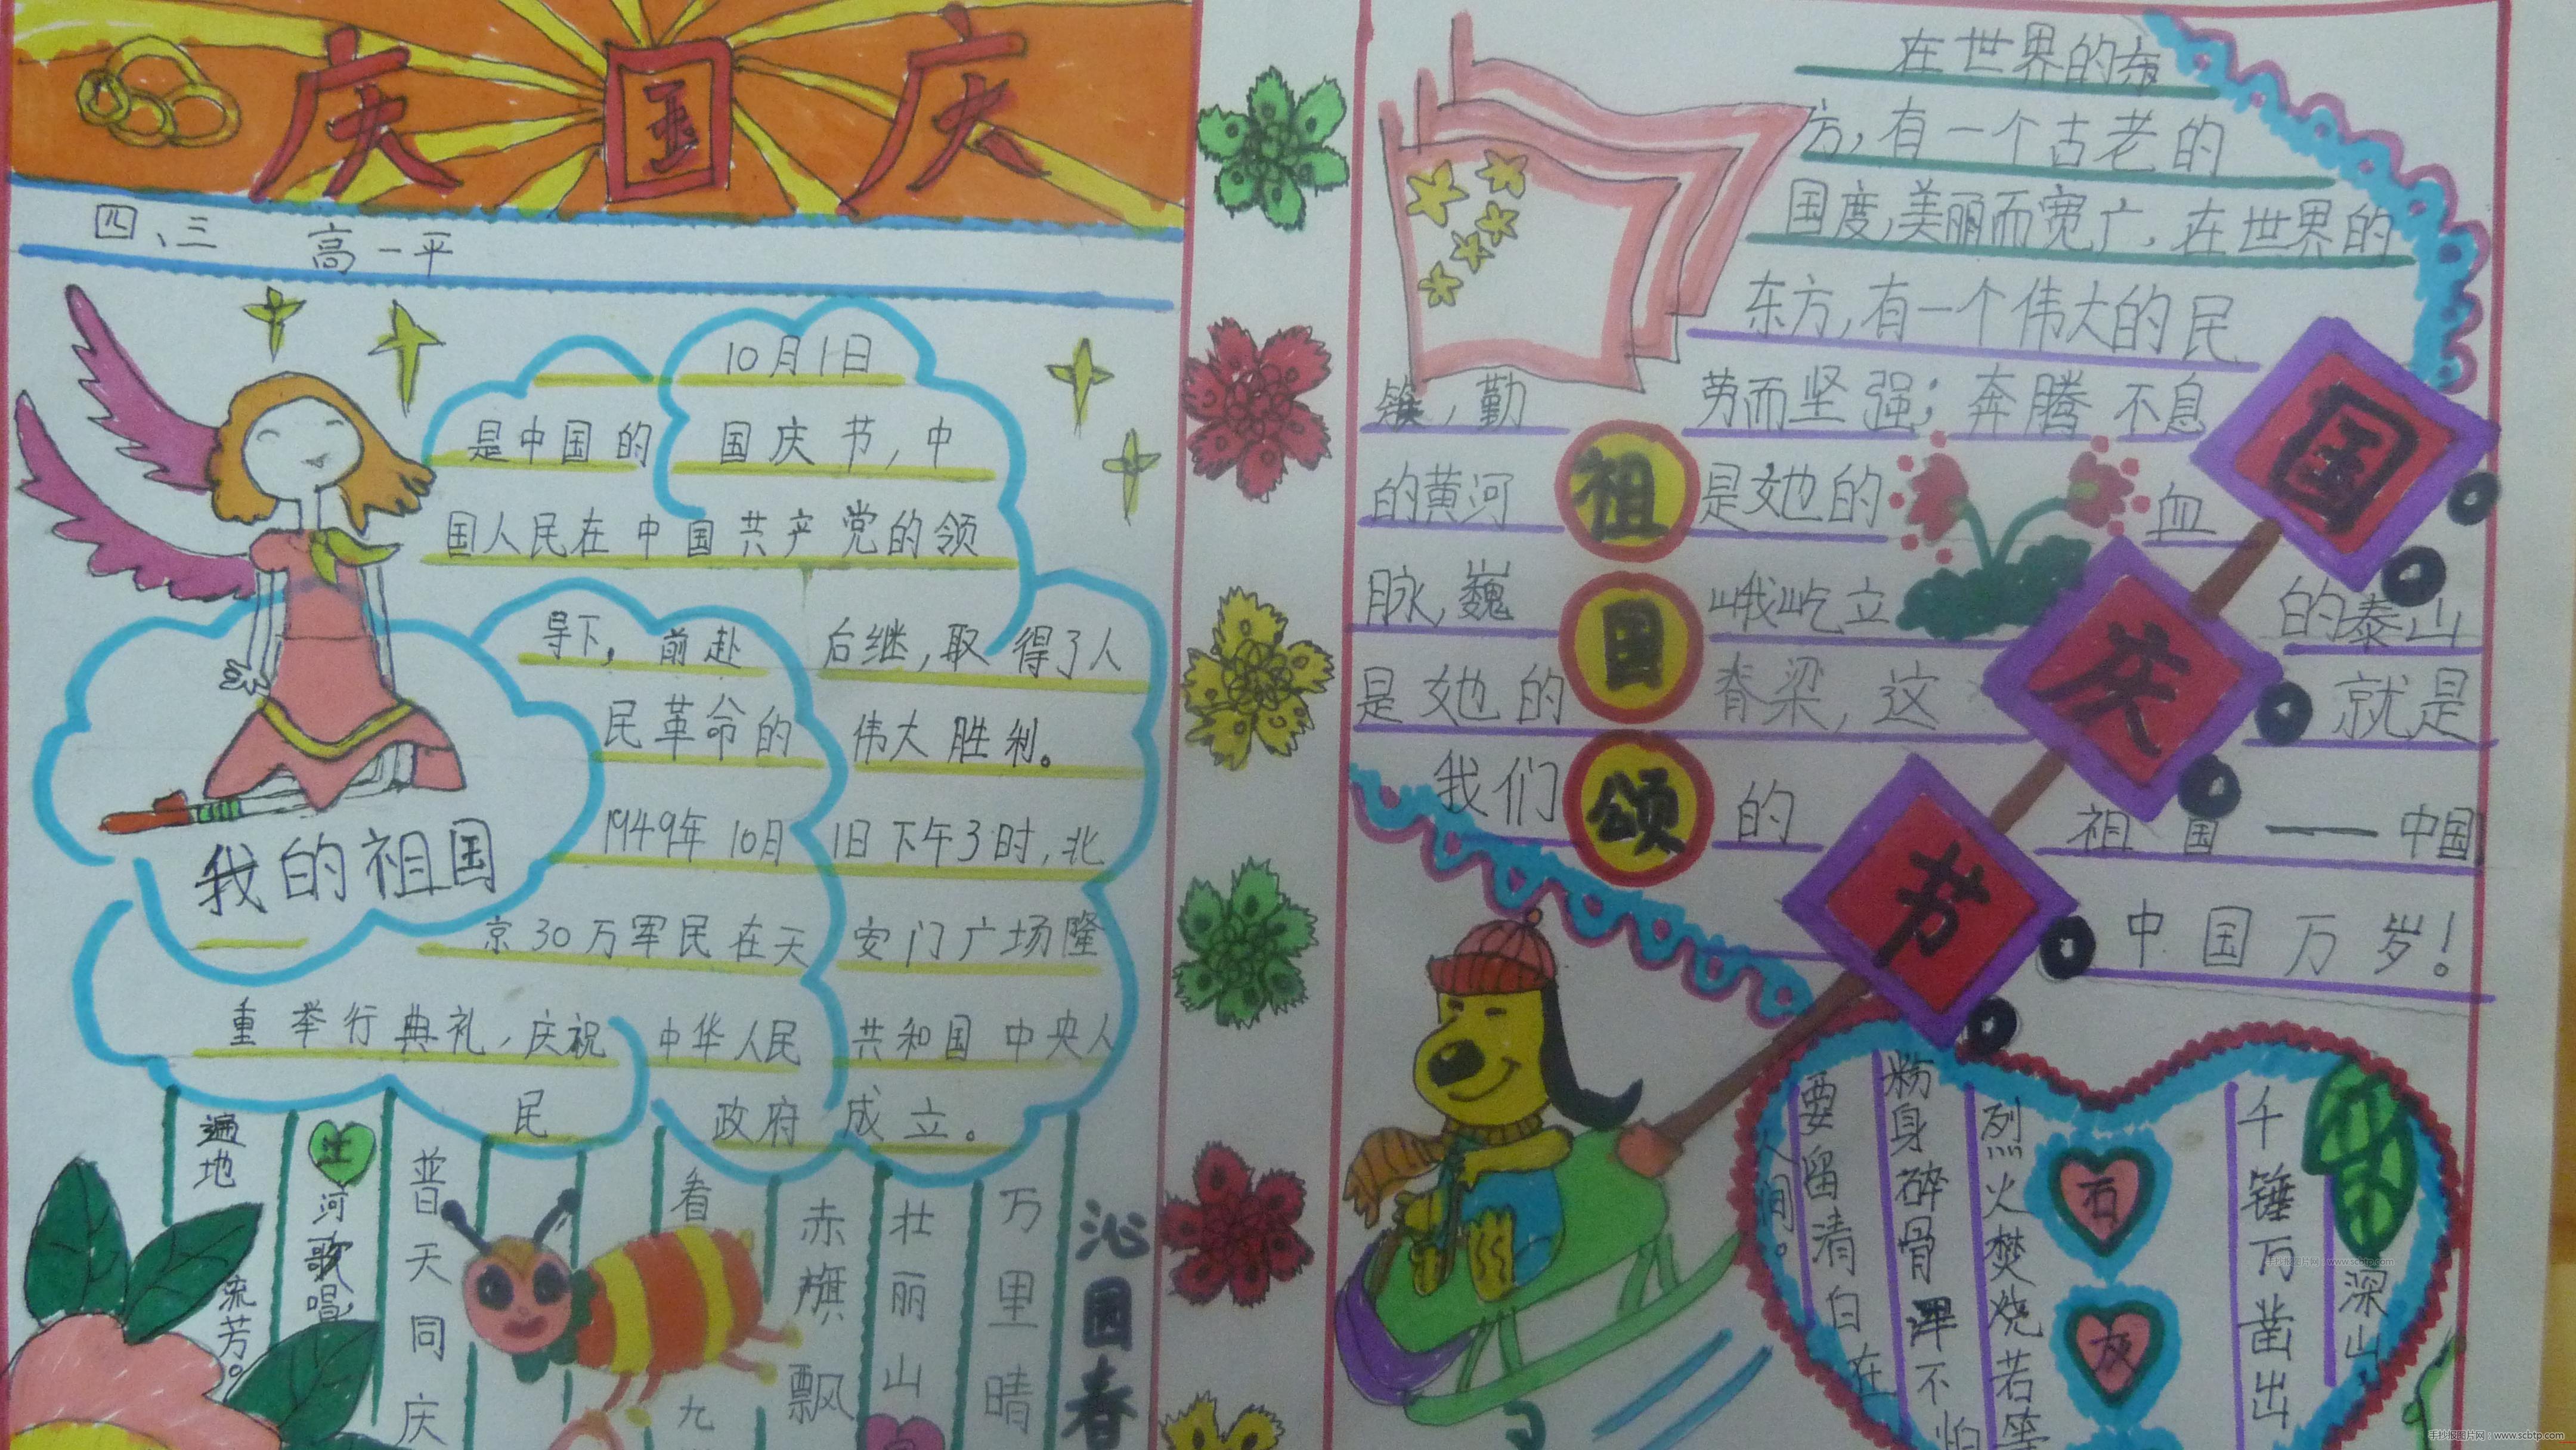 庆国庆
四、三 高一平
10月1日
是中国的国庆节,中
国人民在中国共产党的领
导下,前赴后继,取得了人
民革命的伟大胜利。
1949年10月1日下午3时,北
京30万军民在天安门广场隆
重举行典礼,庆祝中华人民共和国中央人
民政府成立。
我的祖国
沁园春
万里晴
壮丽山
赤旗飘
看
九
普天同庆
江河歌唱
遍地流芳。
在世界的东
方,有一个古老的
国度,美丽而宽广,在世界的
东方,有一个伟大的民
族,勤劳而坚强;奔腾不息
的黄河是她的血
脉,巍峨屹立的泰山
是她的脊梁,这就是
我们的祖国——中国
中国万岁!
祖国颂
国庆节
石灰
千锤万凿出
深山
烈火焚烧若等
粉身碎骨浑不怕
要留清白在
人间。
手抄报图片网:www.scbtp.com
手抄报图片网:www.scbtp.com